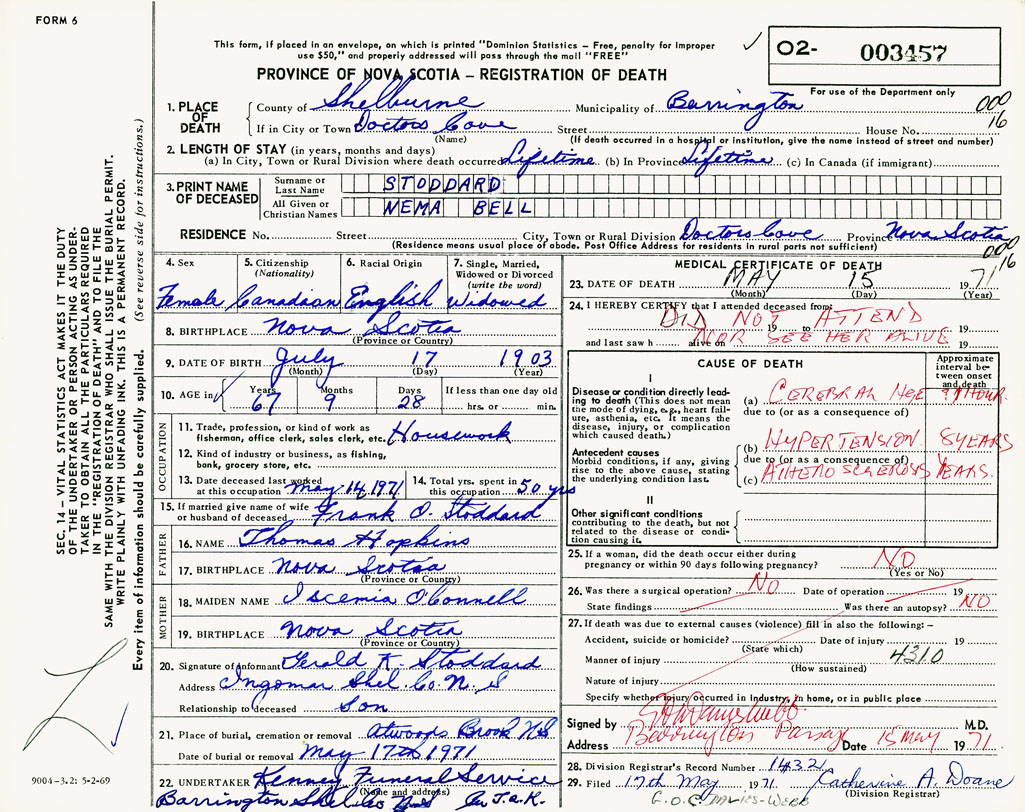 FORM 6
This form, if placed in an envelope, on which is printed "Dominion Statistics – Free, penalty for improper
use $50," and properly addressed will pass through the mail "FREE"
PROVINCE OF NOVA SCOTIA – REGISTRATION OF DEATH
O2- 003457
For use of the Department only
000
16
1. PLACE OF DEATH
County of Shelburne Municipality of Barrington
If in City or Town Doctors Cove Street House No.
(Name) (If death occurred in a hospital or Institution, give the name instead of street and number)
2. LENGTH OF STAY (in years, months and days)
(a) In City, Town or Rural Division where death occurred Lifetime (b) In Province Lifetime (c) In Canada (if immigrant)
3. PRINT NAME OF DECEASED
Surname or Last Name STODDARD
All Given or Christian Names NEMA BELL
RESIDENCE No. Street City, Town or Rural Division Doctors Cove Province Nova Scotia
(Residence means usual place of abode. Post Office Address for residents in rural parts not sufficient)
000
16
4. Sex 5. Citizenship (Nationality) 6. Racial Origin 7. Single, Married, Widowed or Divorced (write the word)
Female Canadian English Widowed
8. BIRTHPLACE Nova Scotia
(Province or Country)
9. DATE OF BIRTH July 17 1903
(Month) (Day) (Year)
10. AGE in Years Months Days If less than one day old
67 9 28 hrs. or min.
OCCUPATION
11. Trade, profession, or kind of work as
fisherman, office clerk, sales clerk, etc. Housework
12. Kind of industry or business, as fishing,
bank, grocery store, etc.
13. Date deceased last worked at this occupation May 14, 1971
14. Total yrs. spent in this occupation 50 yrs
15. If married give name of wife
or husband of deceased Frank O. Stoddard
FATHER
16. NAME Thomas Hopkins
17. BIRTHPLACE Nova Scotia
(Province or Country)
MOTHER
18. MAIDEN NAME Iscemia O'Connell
19. BIRTHPLACE Nova Scotia
(Province or Country)
20. Signature of informant Gerald K. Stoddard
Address Ingomar Shel. Co. N. S
Relationship to deceased son
21. Place of burial, cremation or removal Atwoods Brook N.S
Date of burial or removal May 17th 1971
22. UNDERTAKER Kenney Funeral Service
(Name and address)
Barrington Shel Co N.S
MEDICAL CERTIFICATE OF DEATH
23. DATE OF DEATH MAY 15 1971
(Month) (Day) (Year)
24. I HEREBY CERTIFY that I attended deceased from:
DID NOT ATTEND
19 to 19
and last saw h alive on 19
NOR SEE HER ALIVE
CAUSE OF DEATH
Approximate interval between onset and death
I
Disease or condition directly leading to death (This does not mean
the mode of dying, e.g., heart failure, asthenia, etc. It means the
disease, injury, or complication which caused death.)
(a) CEREBRAL HGE 1 HOUR.
due to (or as a consequence of)
Antecedent causes
Morbid conditions, if any, giving rise to the above cause, stating
the underlying condition last.
(b) HYPERTENSION 8 YEARS
due to (or as a consequence of)
(c) ATHERO SCLEROSIS YEARS.
II
Other significant conditions
contributing to the death, but not related to the disease or condition causing it.
25. If a woman, did the death occur either during
pregnancy or within 90 days following pregnancy? NO
(Yes or No)
26. Was there a surgical operation? NO Date of operation 19
State findings Was there an autopsy? NO
27. If death was due to external causes (violence) fill in also the following: –
Accident, suicide or homicide? Date of injury 19
(State which)
Manner of injury 4310
(How sustained)
Nature of injury
Specify whether injury occurred in industry, in home, or in public place
Signed by M.D.
Address Barrington Passage Date 15 May 1971
28. Division Registrar's Record Number 1432
29. Filed 17th May 1971 Catherine A. Doane
(Division Registrar)
G.O.C. DAVIES-WEBB
SEC. 14 – VITAL STATISTICS ACT MAKES IT THE DUTY
OF THE UNDERTAKER OR PERSON ACTING AS UNDER-
TAKER TO OBTAIN ALL THE PARTICULARS REQUIRED
IN THE "REGISTRATION OF DEATH" AND TO FILE THE
SAME WITH THE DIVISION REGISTRAR WHO SHALL ISSUE THE BURIAL PERMIT.
WRITE PLAINLY WITH UNFADING INK. THIS IS A PERMANENT RECORD.
Every item of information should be carefully supplied. (See reverse side for instructions.)
9004-3.2: 5-2-69